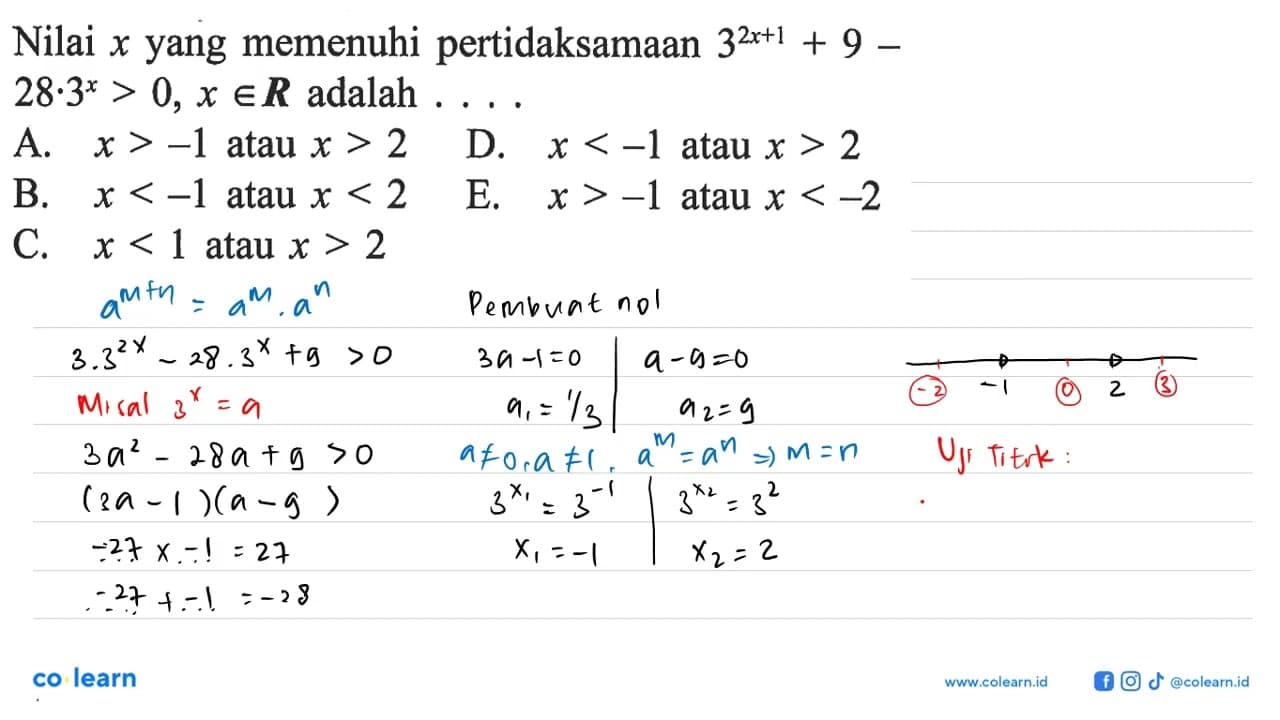 Nilai x yang memenuhi pertidaksamaan 3^{2x+1} + 9 –
28·3^x > 0, x ∈ R adalah . . . .
A. x > –1 atau x > 2
B. x < –1 atau x < 2
C. x < 1 atau x > 2
D. x < –1 atau x > 2
E. x > –1 atau x < –2
a^{m+n} = a^m . a^n
3.3^{2x} - 28.3^x + 9 > 0
Misal 3^x = a
3a² - 28a + 9 > 0
(3a - 1)(a - 9)
-27 x -1 = 27
-27 + -1 = -28
Pembuat nol
3a - 1 = 0 | a - 9 = 0
a₁ = 1/3 | a₂ = 9
a ≠ 0, a ≠ 1, a^m = a^n ⇒ m = n
3^{x₁} = 3^{-1} | 3^{x₂} = 3²
x₁ = -1 | x₂ = 2
-2 -1 0 2 3
Uji Titik :
co learn
www.colearn.id
@colearn.id